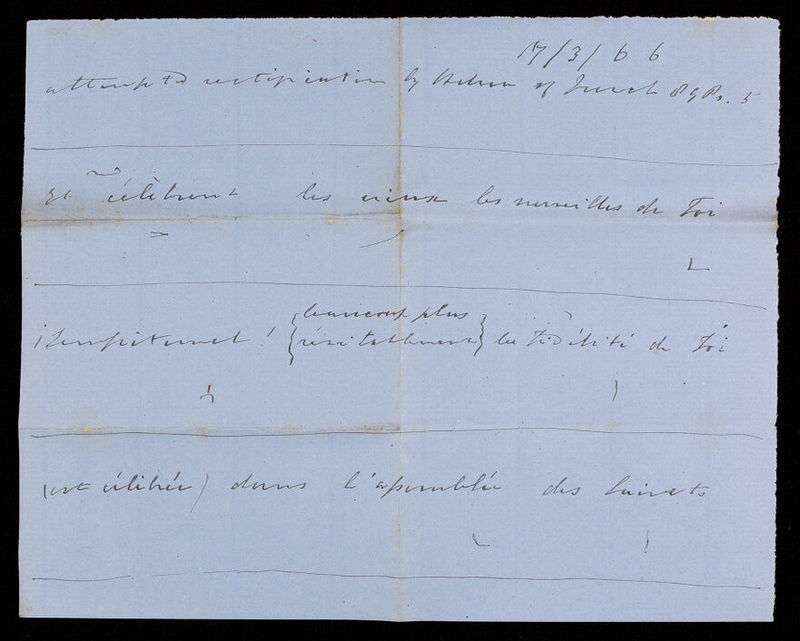 17/3/66
attempted rectification by Hebrew of French 89 Ps. 5
Et célèbrent les cieux les merveilles de Toi
! Sempiternel ! { beaucoup plus
véritablement } la fidélité de Toi
(est célébrée) dans l'assemblée des Saints